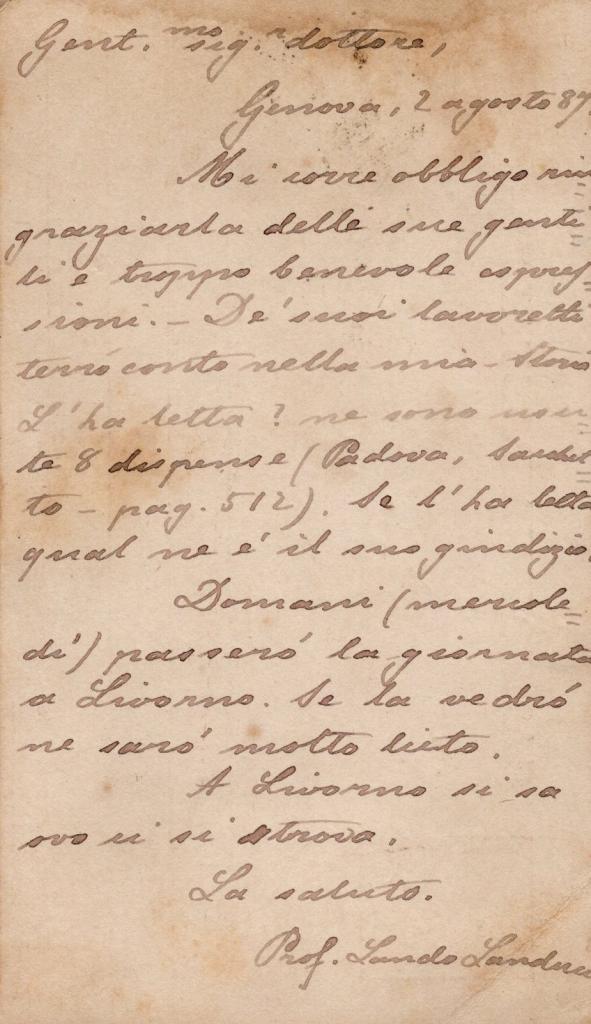 Gent.mo sig.r dottore,
Genova, 2 agosto 87.
Mi corre obbligo rin=
graziarla delle sue genti=
li e troppo benevole espres=
sioni. — De' suoi lavoretti
terró conto nella mia Storia
L'ha letta? ne sono usci=
te 8 dispense (Padova, Sacchet=
to - pag. 512). Se l'ha letta
qual ne é il suo giudizio.
Domani (mercole=
dí) passeró la giornata
a Livorno. Se la vedró
ne saró molto lieto.
A Livorno si sa
ove ci si trova.
La saluto.
Prof. Lando Landucci